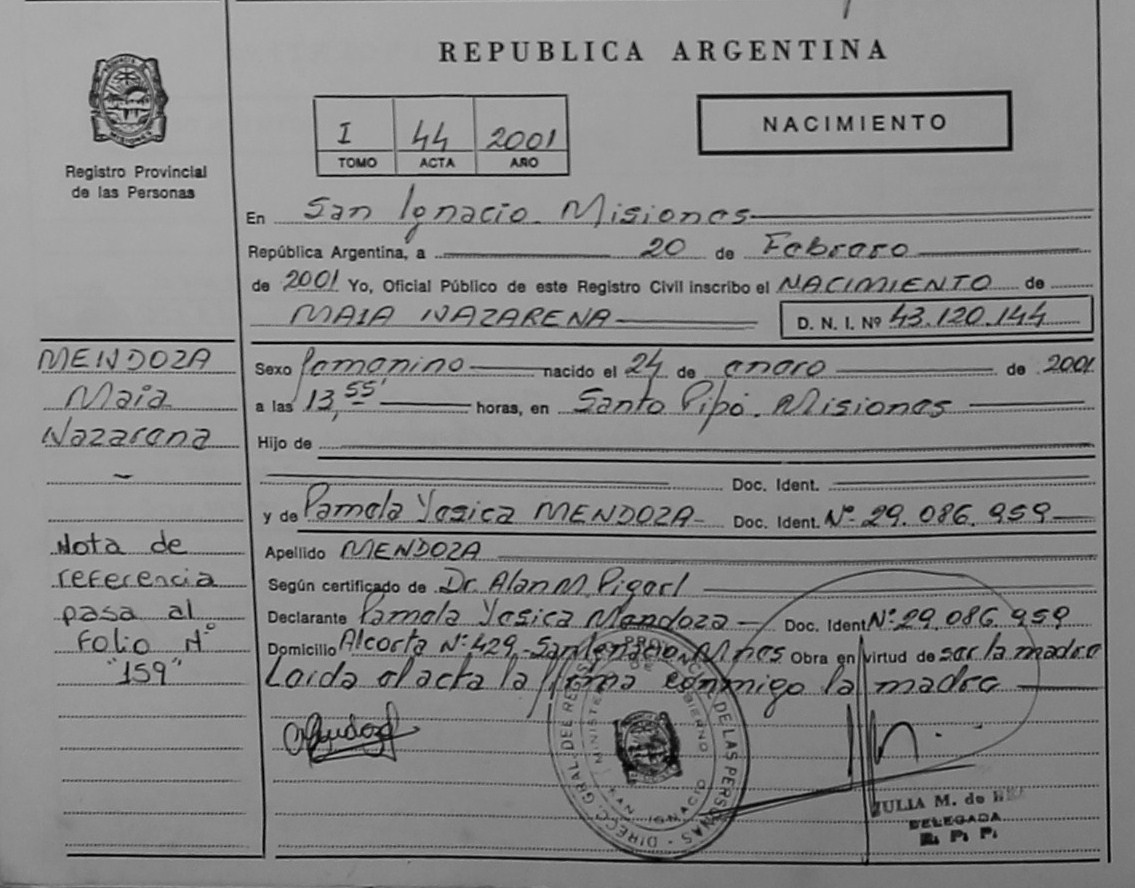 REPUBLICA ARGENTINA
Registro Provincial
de las Personas
I 44 2001
TOMO ACTA AÑO
NACIMIENTO
En San Ignacio. Misiones
República Argentina, a 20 de Febrero
de 2001 Yo, Oficial Público de este Registro Civil inscribo el NACIMIENTO de
MAIA NAZARENA D. N. I. Nº 43.120.144
Sexo femenino nacido el 24 de enero de 2001
a las 13,55' horas, en Santo Pipó. Misiones
Hijo de
Doc. Ident.
y de Pamela Yesica MENDOZA Doc. Ident. Nº 29.086.959
Apellido MENDOZA
Según certificado de Dr. Alan M.
Declarante Pamela Yesica Mendoza Doc. Ident Nº 29.086.959
Domicilio Alcorta Nº 429 - San Ignacio Mnes Obra en virtud de ser la madre
Leida el acta la firma conmigo la madre
MENDOZA
Maia
Nazarena
Nota de
referencia
pasa al
Folio Nº
"159"
DIRECC. GRAL. DEL REG. DE LAS PERSONAS
SAN IGNACIO
JULIA M. de
DELEGADA
R. P. P.